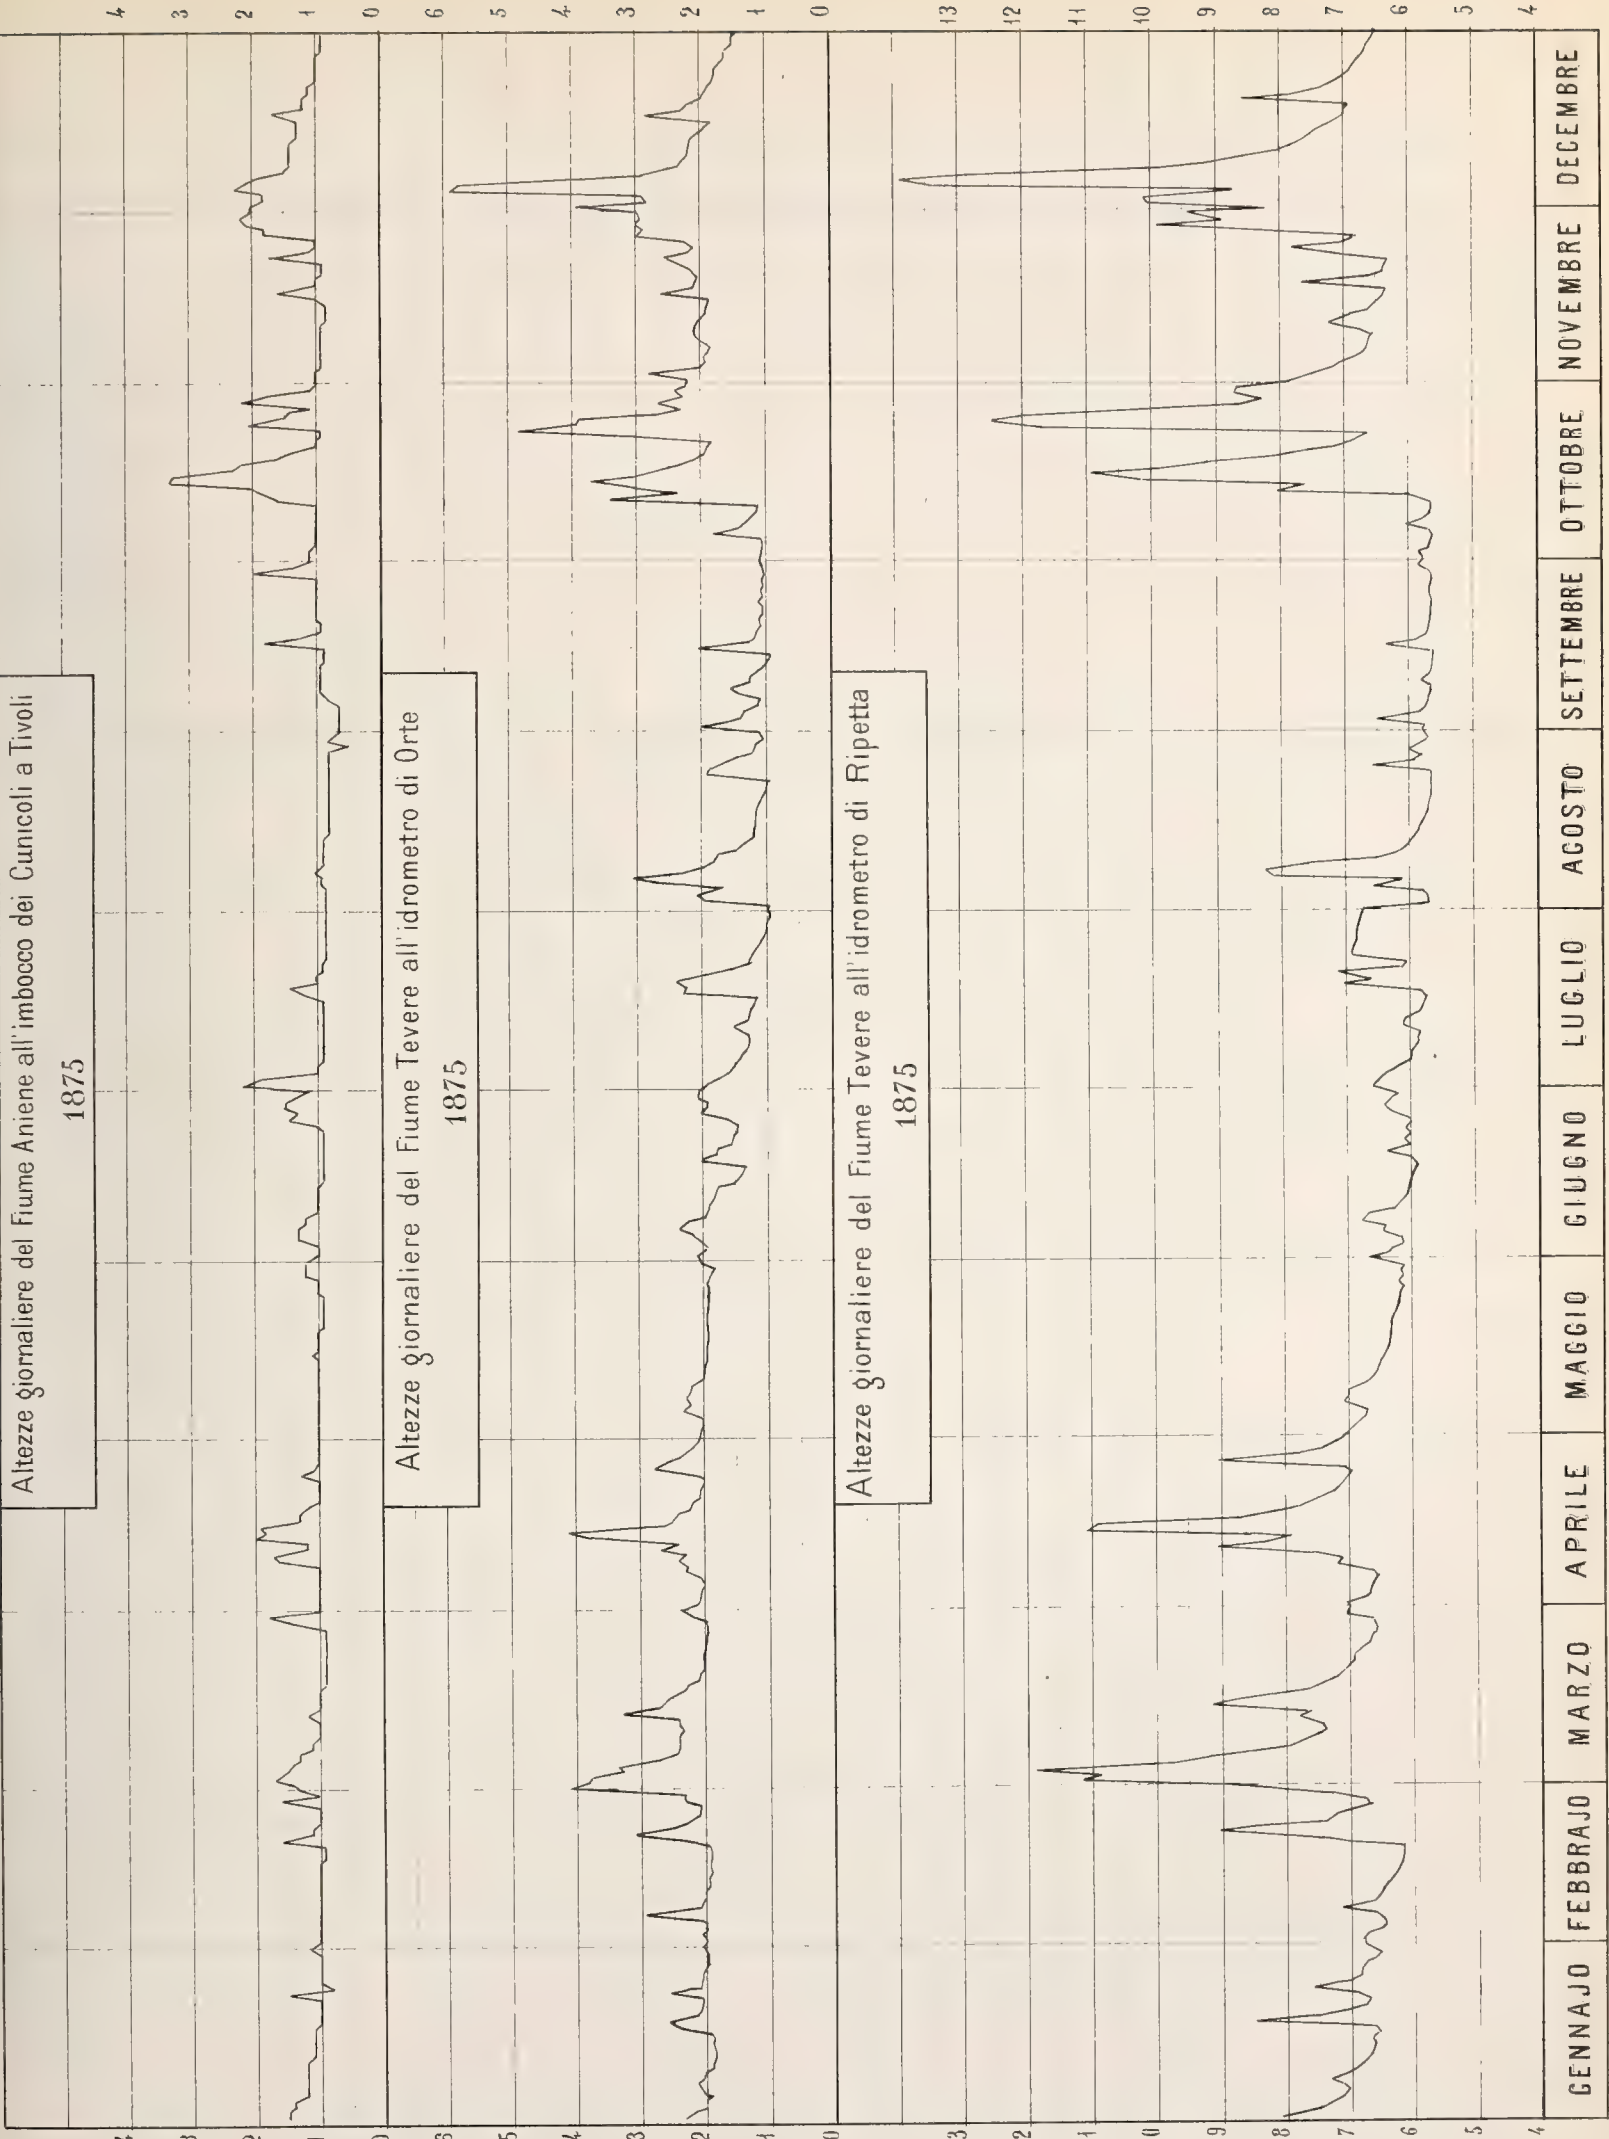 Altezze giornaliere del Fiume Aniene all'imbocco dei Cunicoli a Tivoli
1875
4
3
2
1
0
Altezze giornaliere del Fiume Tevere all'idrometro di Orte
1875
6
5
4
3
2
1
0
Altezze giornaliere del Fiume Tevere all'idrometro di Ripetta
1875
13
12
11
10
9
8
7
6
5
4
3
2
1
0
5
4
3
2
1
0
3
2
1
0
9
8
7
6
5
4
GENNAJO FEBBRAJO MARZO APRILE MAGGIO GIUGNO LUGLIO AGOSTO SETTEMBRE OTTOBRE NOVEMBRE DECEMBRE